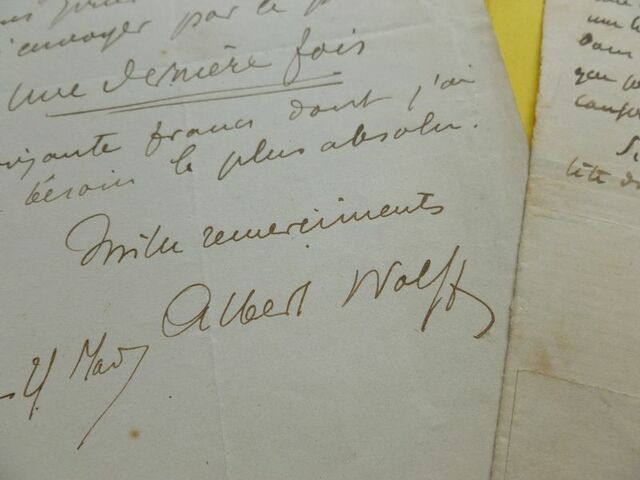 envoyer par le
une dernière fois
soixante francs dont j'ai
besoin le plus absolu.
Mille remerciments
Albert Wolff
une
Dans